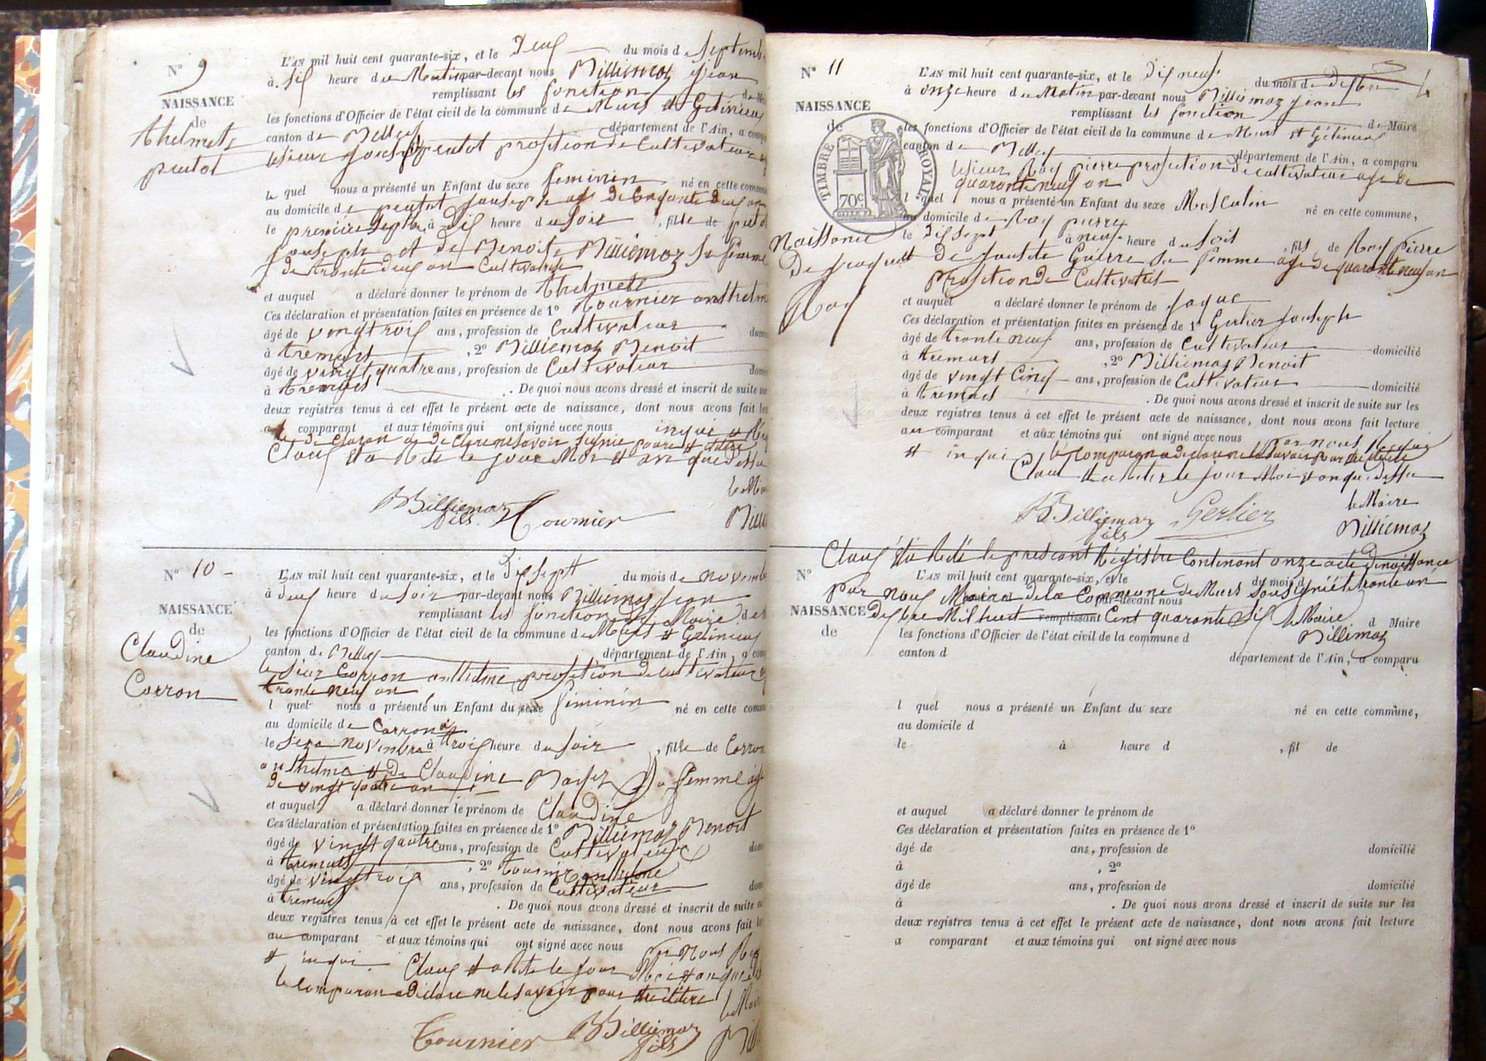 N° 9
NAISSANCE
de
thelmets
peutot
L'AN mil huit cent quarante-six, et le Deux du mois de Septemb
à Six heure du Matin par-devant nous Billiemaz Jean
remplissant les fonction
les fonctions d'Officier de l'état civil de la commune de Murs et Gélinieux
canton de Belley département de l'Ain, a comp
le sieur Joseph peutot profession de Cultivateur
le quel nous a présenté un Enfant du sexe feminin né en cette commune
au domicile de peutot Jouseph age de
le premier à Dix heure du Soir , fille de
Jouseph et de Benoite Billiemaz Sa femme
de trente deux an Cultivatrice
et auquel a déclaré donner le prénom de thelmets
Ces déclaration et présentation faites en présence de 1° tournier anthelm
âgé de vingt trois ans, profession de Cultivateur
à tremurs , 2° Billiemaz Benoit
âgé de vingt quatre ans, profession de Cultivateur
à tremurs . De quoi nous avons dressé et inscrit de suite sur
deux registres tenus à cet effet le présent acte de naissance, dont nous avons fait le
au comparant et aux témoins qui ont signé avec nous
Claux et a Rete le jour Moi et an que dessu
le Ma
BBilliemaz fils Tournier Billi
N° 10
NAISSANCE
de
Claudine
Corron
L'AN mil huit cent quarante-six, et le Dix Sept du mois de novemb
à deux heure du Soir par-devant nous Billiemaz Jean
remplissant les fonction de Maire
les fonctions d'Officier de l'état civil de la commune de Murs et Gelinieux
canton de Belley département de l'Ain, a comp
le Sieur Corron anthelme profession de cultivateur
trante neuf an
l quel nous a présenté un Enfant du sexe féminin né en cette commu
au domicile de Corron
le Seze novembre à trois heure du Soir , fille de Corron
anthelme et de Claudine Sa femme agé
de vingt quatre an
et auquel a déclaré donner le prénom de Claudine
Ces déclaration et présentation faites en présence de 1° Billiemaz Benoit
âgé de vingt quatre ans, profession de Cultivateur
à tremurs , 2° tournier
âgé de vingt trois ans, profession de Cultivateur
à tremurs . De quoi nous avons dressé et inscrit de suite
deux registres tenus à cet effet le présent acte de naissance, dont nous avons fait
au comparant et aux témoins qui ont signé avec nous
Claux et a Rete le jour Moi et an que
le comparan a declare ne le savoir le Maire
Tournier BBilliemaz fils
N° 11
NAISSANCE
de
TIMBRE ROYAL
70c
Naissance
De Jaque
Roy
L'AN mil huit cent quarante-six, et le Dix neuf du mois de
à onze heure du Matin par-devant nous Billiemaz Jean
remplissant les fonction de Maire
les fonctions d'Officier de l'état civil de la commune de Murs et Gélinieux
canton de Belley département de l'Ain, a comparu
le sieur Roy pierre profection de cultivateur age de
quarante neuf an
l quel nous a présenté un Enfant du sexe Masculin né en cette commune,
au domicile de Roy pierre
le Dix Sept à neuf heure du Soir , fils de Roy Pierre
et de Guerre Sa femme age de quarante an
Profection de Cultivatrice
et auquel a déclaré donner le prénom de Jaque
Ces déclaration et présentation faites en présence de 1° Gerlier Joseph
âgé de trente neuf ans, profession de Cultivateur domicilié
à tremurs , 2° Billiemaz Benoit
âgé de vingt Cinq ans, profession de Cultivateur domicilié
à tremurs . De quoi nous avons dressé et inscrit de suite sur les
deux registres tenus à cet effet le présent acte de naissance, dont nous avons fait lecture
au comparant et aux témoins qui ont signé avec nous
Claux et a Reter le jour Moi et an que dessu
le Maire
BBilliemaz fils Gerlier Billiemaz
Claux et a Reté le present Registre Contenant onze acte de naissance
par nous Maire de la Commune de Murs Sousigné le trante un
Desbre Mil huit Cent quarante Six le Maire
Billiemaz
N°
NAISSANCE
de
L'AN mil huit cent quarante-six, et le du mois d
par-devant nous
remplissant d Maire
les fonctions d'Officier de l'état civil de la commune d
canton d département de l'Ain, a comparu
l quel nous a présenté un Enfant du sexe né en cette commune,
au domicile d
le à heure d , fil de
et auquel a déclaré donner le prénom de
Ces déclaration et présentation faites en présence de 1°
âgé de ans, profession de domicilié
à , 2°
âgé de ans, profession de domicilié
à . De quoi nous avons dressé et inscrit de suite sur les
deux registres tenus à cet effet le présent acte de naissance, dont nous avons fait lecture
a comparant et aux témoins qui ont signé avec nous